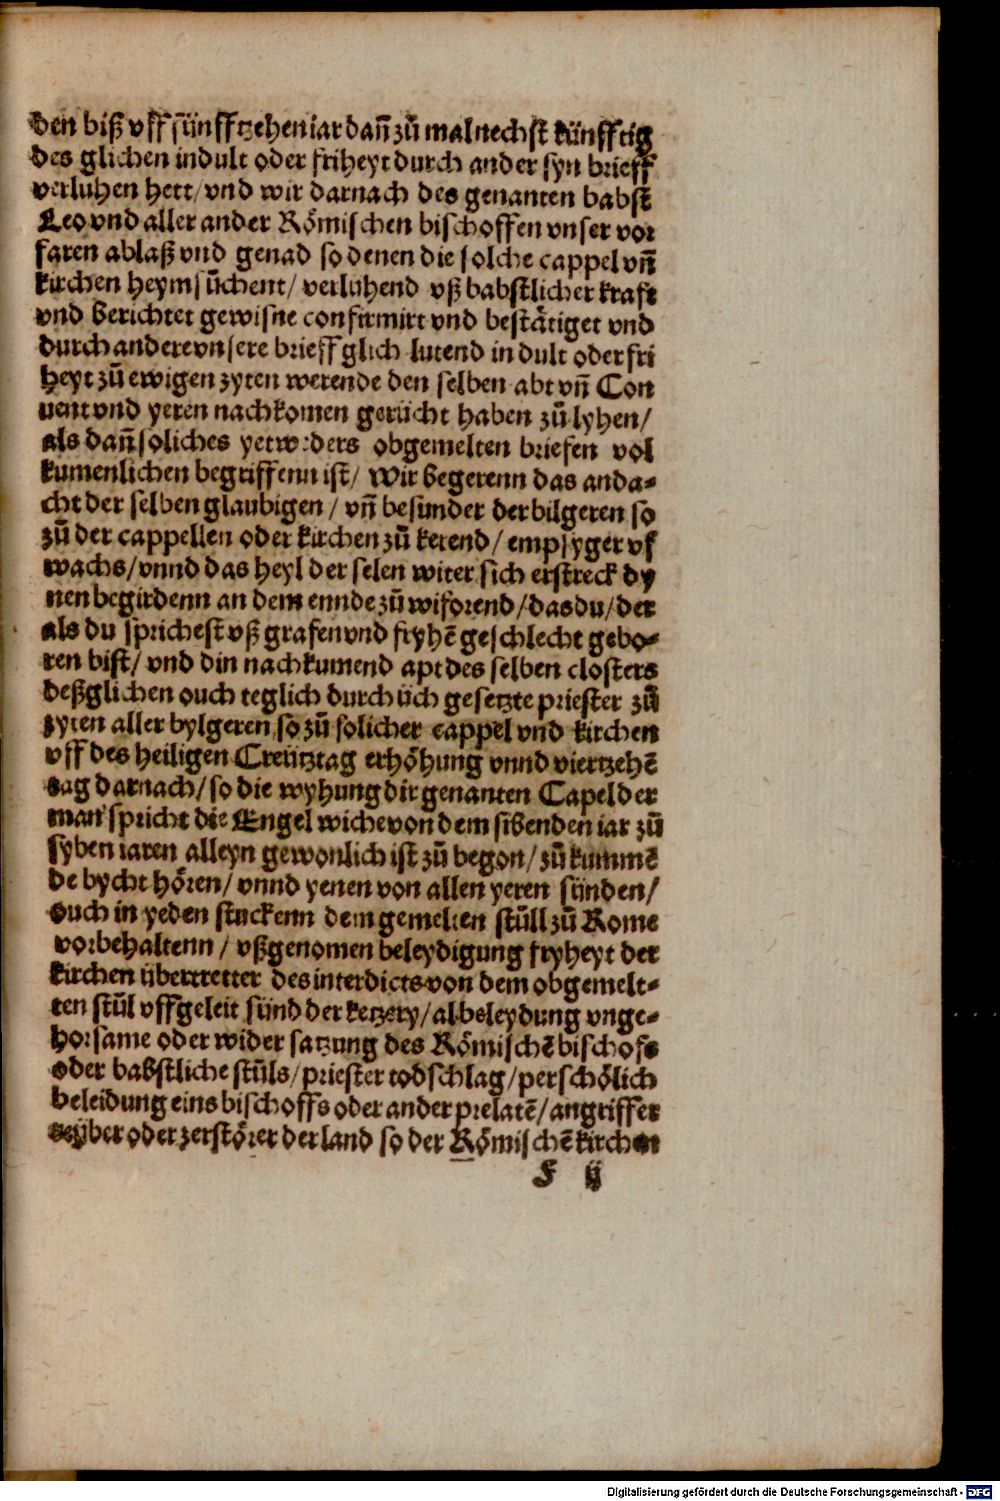 den biß vff fünfftzehen iar dañ zů mal nechst künfftig
des glichen indult oder friheyt durch ander syn brieff
verluhen hett/ vnd wir darnach des genanten babst
Leo vnd aller ander Römischen bischoffen vnser vor
faren ablaß vnd genad so denen die solche cappel vñ
kirchen heymsůchent/ verluhend vß babstlicher kraft
vnd berichtet gewisne confirmirt vnd bestätiget vnd
durch andere vnsere brieff glich lutend in dult oder fri
heyt zů ewigen zyten werende den selben abt vñ Con
uent vnd yeren nachkomen gerücht haben zů lyhen/
als dañ soliches yetwders obgemelten briefen vol
kumenlichen begriffenn ist/ Wir begerenn das anda-
cht der selben glaubigen / vñ besunder der bilgeren so
zů der cappellen oder kirchen zů kerend/ empsyger vf
wachs/ vnnd das heyl der selen witer sich erstreck dy
nen begirdenn an dem ennde zů wiforend/ das du/ der
als du sprichest vß grafen vnd fryhē geschlecht gebo-
ren bist/ vnd din nachkumend apt des selben closters
deßglichen ouch teglich durch üch gesetzte priester zů
zyten aller bylgeren so zů solicher cappel vnd kirchen
vff des heiligen Creütztag erhöhung vnnd viertzehē
tag darnach/ so die wyhung dir genanten Capel der
man spricht die Engel wiche von dem sibenden iar zů
syben iaren alleyn gewonlich ist zů begon/ zů kummē
de bycht hören/ vnnd yenen von allen yeren sünden/
ouch in yeden stuckenn dem gemelten stůll zů Rome
vorbehaltenn / vßgenomen beleydigung fryheyt der
kirchen übertretter des interdicts von dem obgemelt-
ten stůl vffgeleit sünd der ketzery/ albeleydung vnge-
horsame oder wider satzung des Römischē bischofs
oder babstliche stůls/ priester todschlag/ perschölich
beleidung eins bischoffs oder ander prelatē/ angriffer
oder zerstörer der land so der Römischē kirchen
F ij
Digitalisierung gefördert durch die Deutsche Forschungsgemeinschaft - DFG